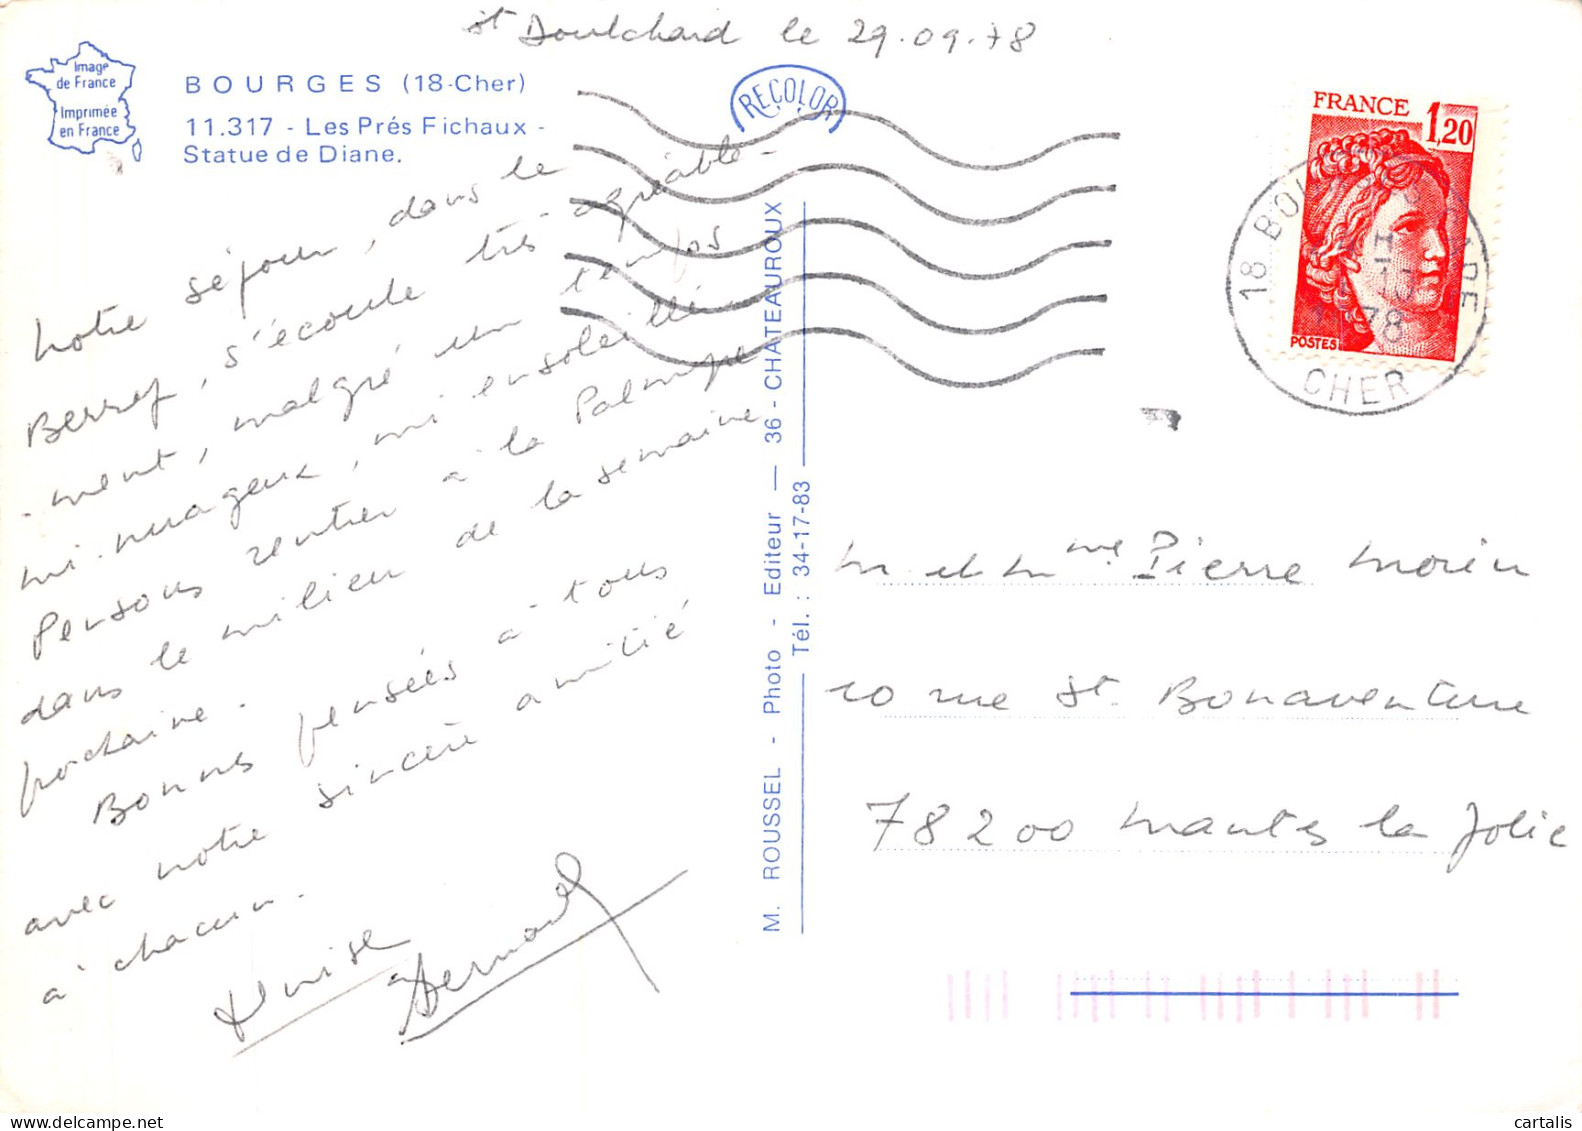 St Doulchard le 29.09.78
Image
de France
Imprimée
en France
BOURGES (18-Cher)
11.317 - Les Prés Fichaux -
Statue de Diane.
RECOLOR
FRANCE 1,20
POSTES
18 BOURGES GARE
78
CHER
Notre séjour, dans le
Berry, s'écoule très agréable-
-ment, malgré un temps
mi-nuageux, mi ensoleillé
Pensons rentrer à la
dans le milieu de la semaine
prochaine.
Bonnes pensées à tous
avec notre sincère amitié
à chacun.
Bernard
M. ROUSSEL - Photo - Editeur — 36 - CHATEAUROUX
Tél. : 34-17-83
M et Mme Pierre Morin
10 rue St Bonaventure
78200 Mantes la Jolie
cartalis